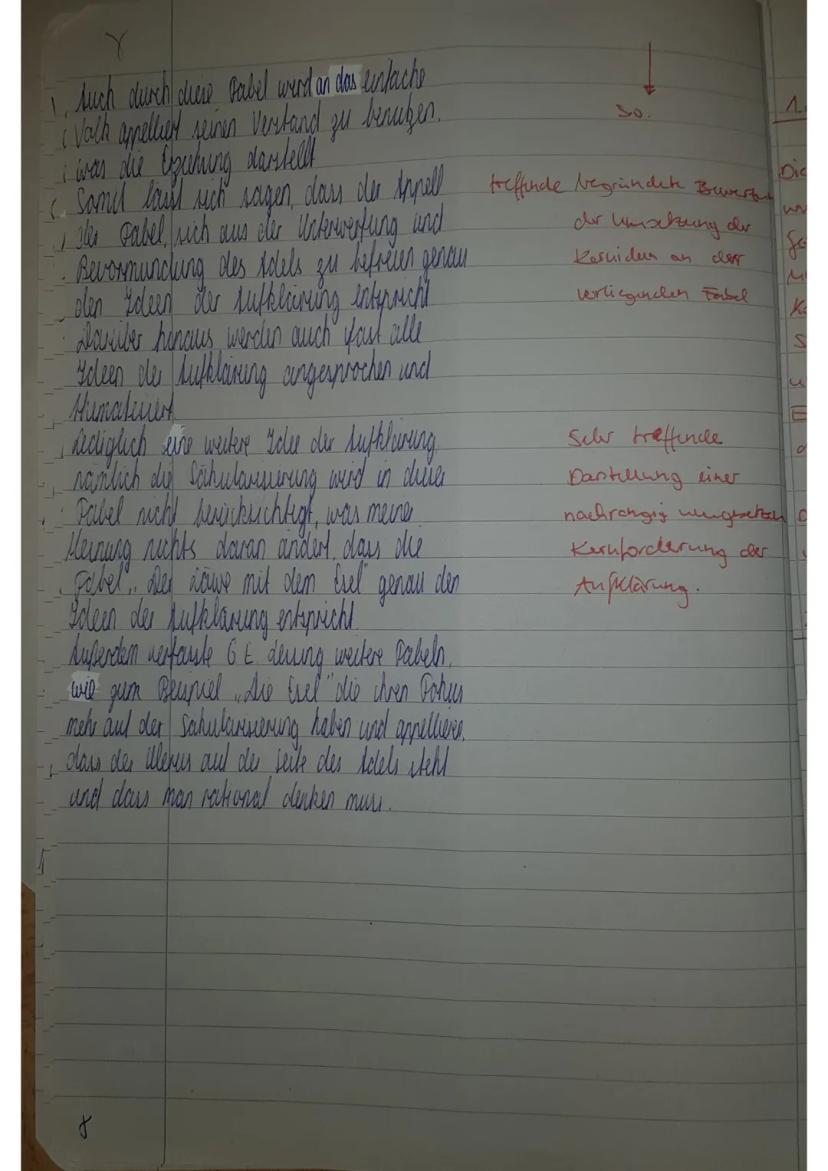 Auch durch diese Fabel wird an das einfache
Volk appelliert seinen Verstand zu benutzen,
was die Erziehung darstellt
Somit lässt sich sagen, dass der Appell
der Fabel, sich aus der Unterwerfung und
Bevormundung des Adels zu befreien genau
den Ideen der Aufklärung entspricht
Darüber hinaus werden auch fast alle
Ideen der Aufklärung angesprochen und
thematisiert
Lediglich eine weitere Idee der Aufklärung
nämlich die Säkularisierung wird in dieser
Fabel nicht berücksichtigt, was meiner
Meinung nichts daran ändert, dass die
Fabel „Der Löwe mit dem Esel" genau den
Ideen der Aufklärung entspricht
Außerdem verfasste G E. Lessing weitere Fabeln,
wie zum Beispiel „Die Esel" die ihren Fokus
mehr auf der Säkularisierung haben und appellieren,
dass der Klerus auf der Seite des Adels steht
und dass man rational denken muss.
8
so.
treffende begründete
der Umsetzung der
Kernideen an der
vorliegenden Fabel
Sehr treffende
Darstellung einer
nachrangig umgesetzten
Kernforderung der
Aufklärung.
1.